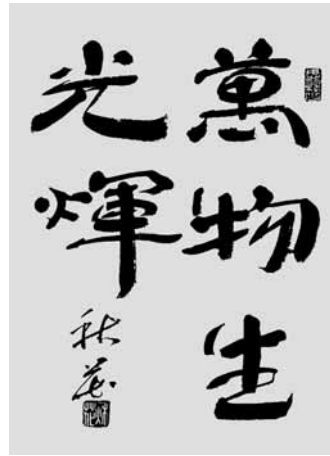 萬物生
光輝
秋花